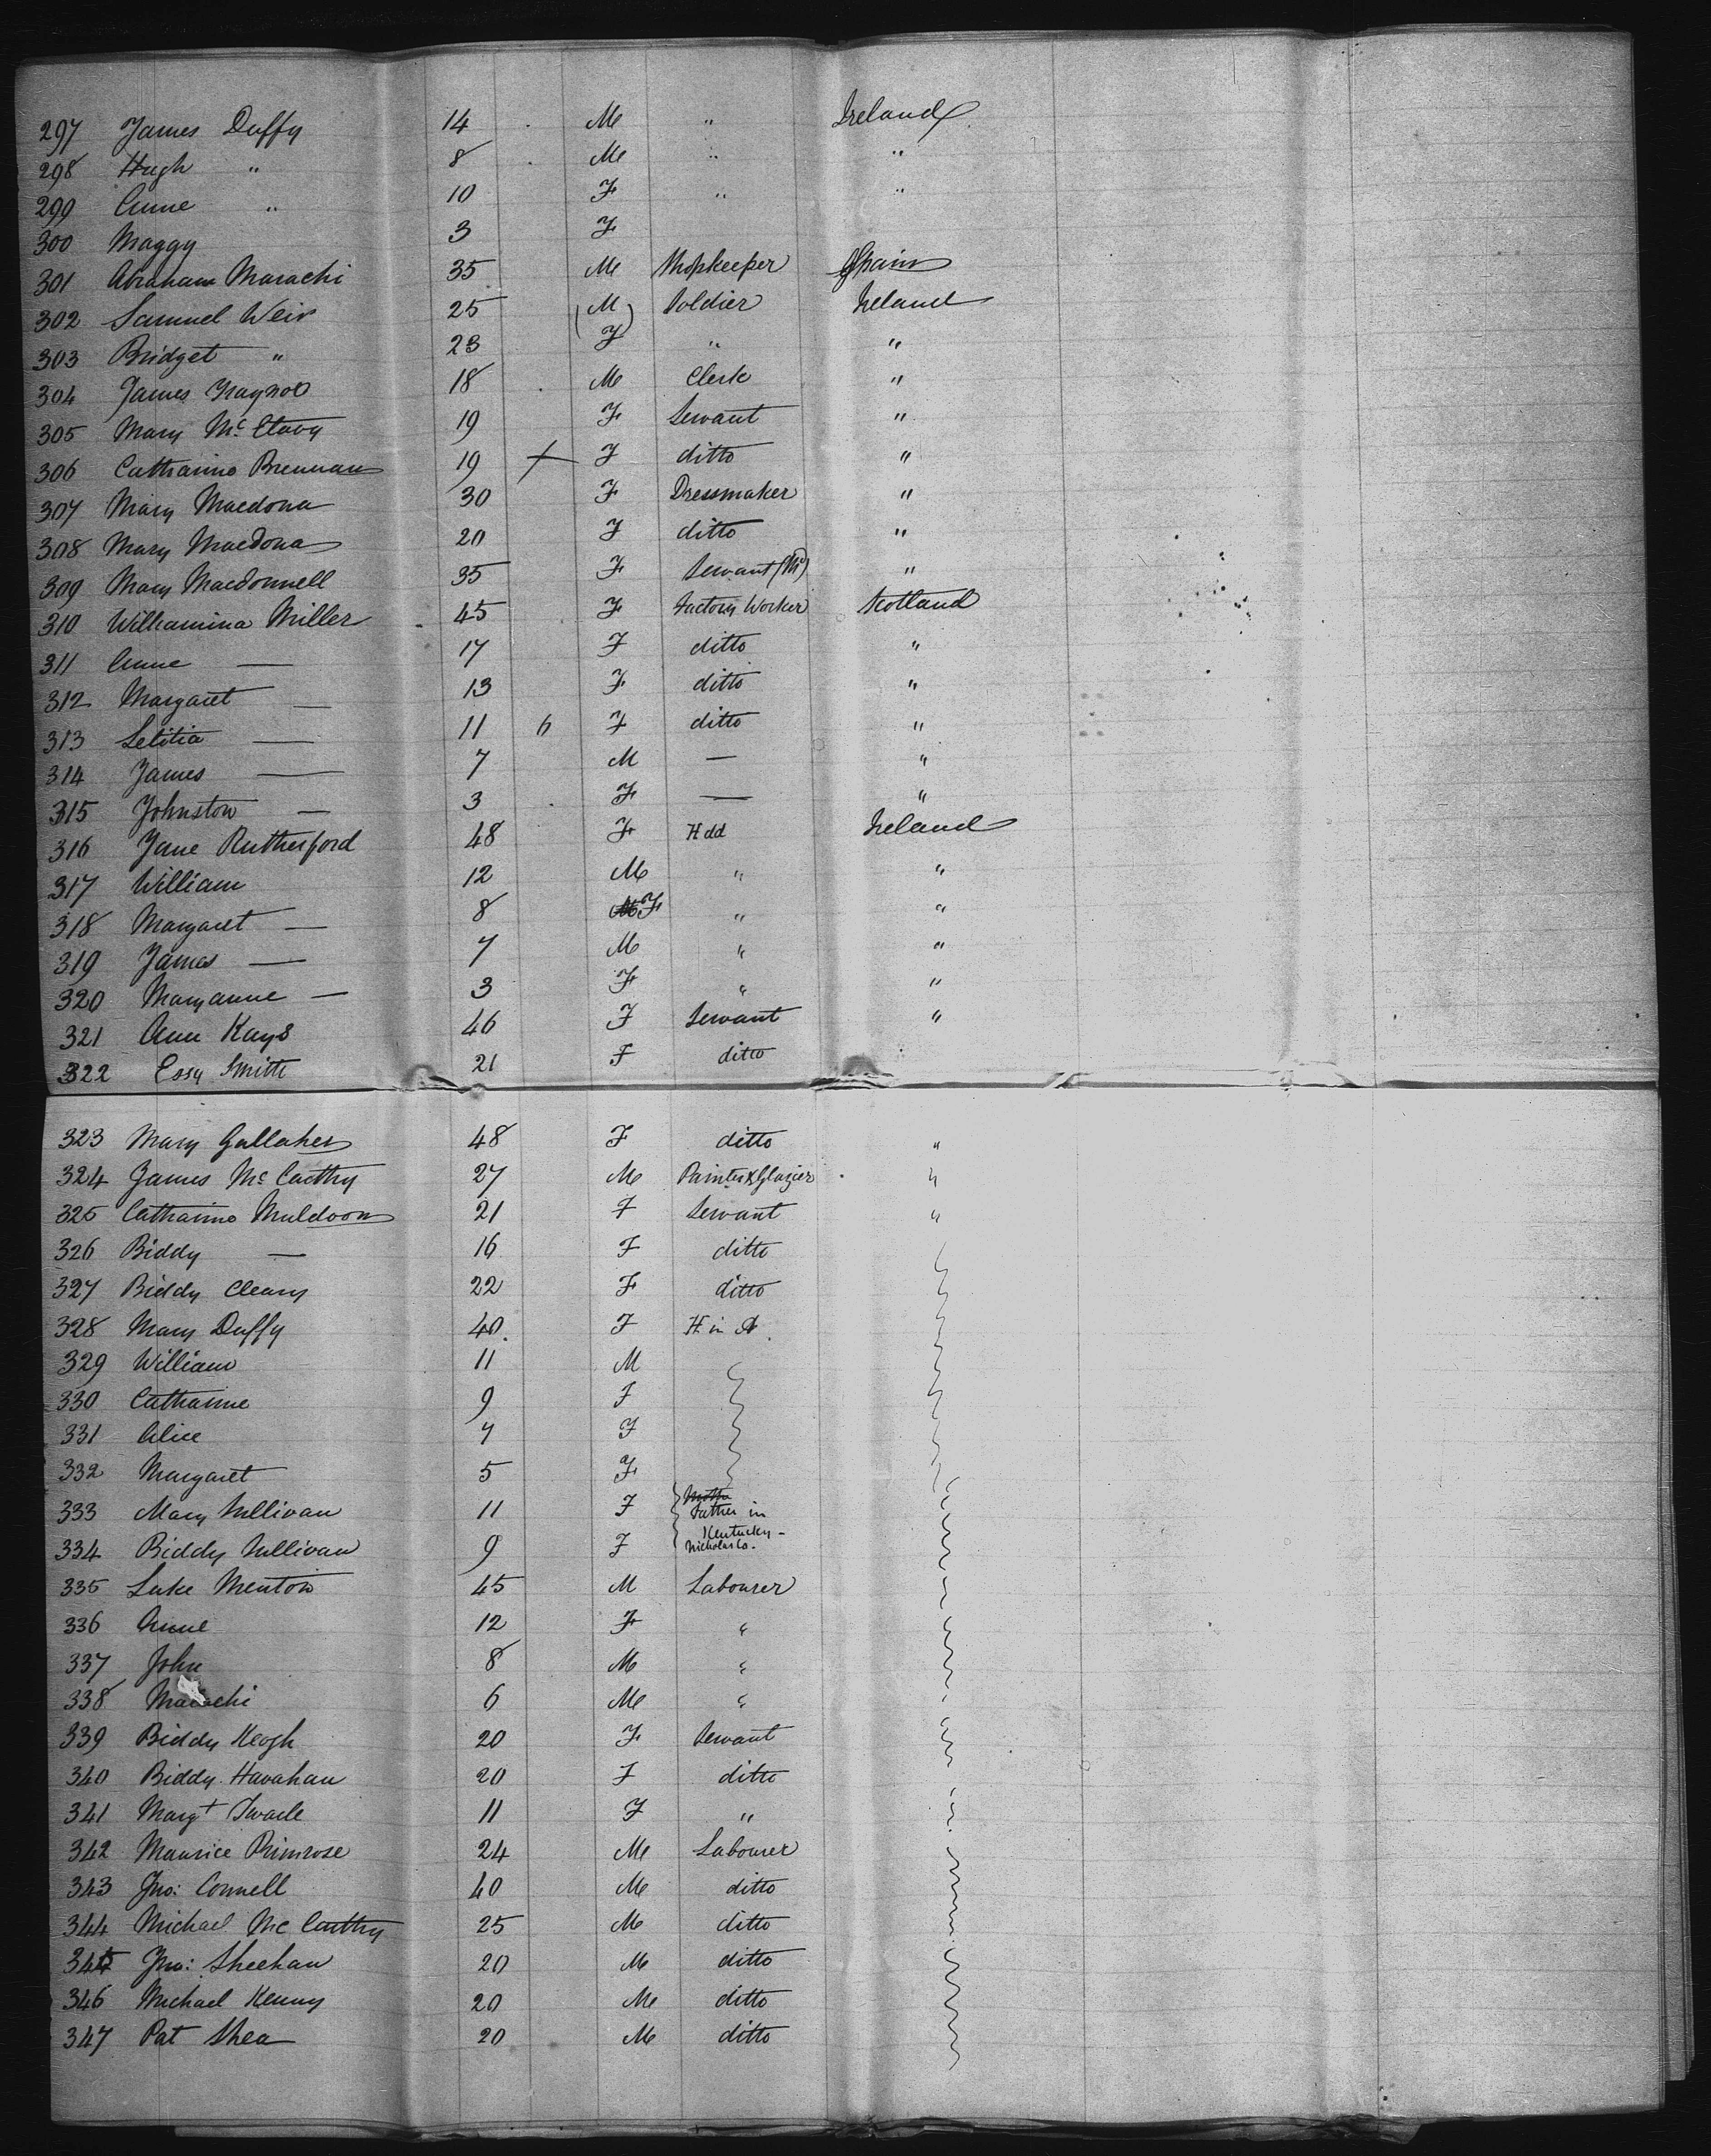 297 James Duffy 14 . M " Ireland
298 Hugh " 8 . M " "
299 Anne " 10 F " "
300 Maggy 3 F
301 Abraham Marachi 35 M Shopkeeper Spain
302 Samuel Weir 25 (M) Soldier Ireland
303 Bridget " 23 F " "
304 James 18 . M Clerk "
305 Mary 19 F Servant "
306 Catharine Brennan 19 + F ditto "
307 Mary Macdona 30 F Dressmaker "
308 Mary Macdona 20 F ditto "
309 Mary Macdonnell 35 F Servant (M) "
310 Wilhamina Miller 45 F Factory Worker Scotland
311 Anne — 17 F ditto "
312 Margaret — 13 F ditto "
313 Letitia — 11 6 F ditto "
314 James — 7 M — "
315 Johnston — 3 . F — "
316 Jane Rutherford 48 F H dd Ireland
317 William 12 M " "
318 Margaret — 8 M F " "
319 James — 7 M " "
320 Maryanne — 3 F " "
321 Ann Kays 46 F Servant "
322 Essy Smith 21 F ditto
323 Mary Gallaher 48 F ditto "
324 James Mc Carthy 27 M Painter & Glazier "
325 Catharine Muldoon 21 F Servant "
326 Biddy — 16 F ditto
327 Biddy Cleary 22 F ditto
328 Mary Duffy 40 F H in A
329 William 11 M
330 Catharine 9 F
331 Alice 7 F
332 Margaret 5 F
333 Mary Sullivan 11 F Mother Father in
334 Biddy Sullivan 9 F Kentucky - Nicholas Co.
335 Luke Menton 45 M Labourer
336 Anne 12 F "
337 John 8 M "
338 Malachi 6 M "
339 Biddy Keogh 20 F Servant
340 Biddy Hanahan 20 F ditto
341 Margt 11 F "
342 Maurice Primrose 24 M Labourer
343 Jno: Connell 40 M ditto
344 Michael Mc Carthy 25 M ditto
345 Jno: Sheehan 20 M ditto
346 Michael Kenny 20 M ditto
347 Pat Shea 20 M ditto